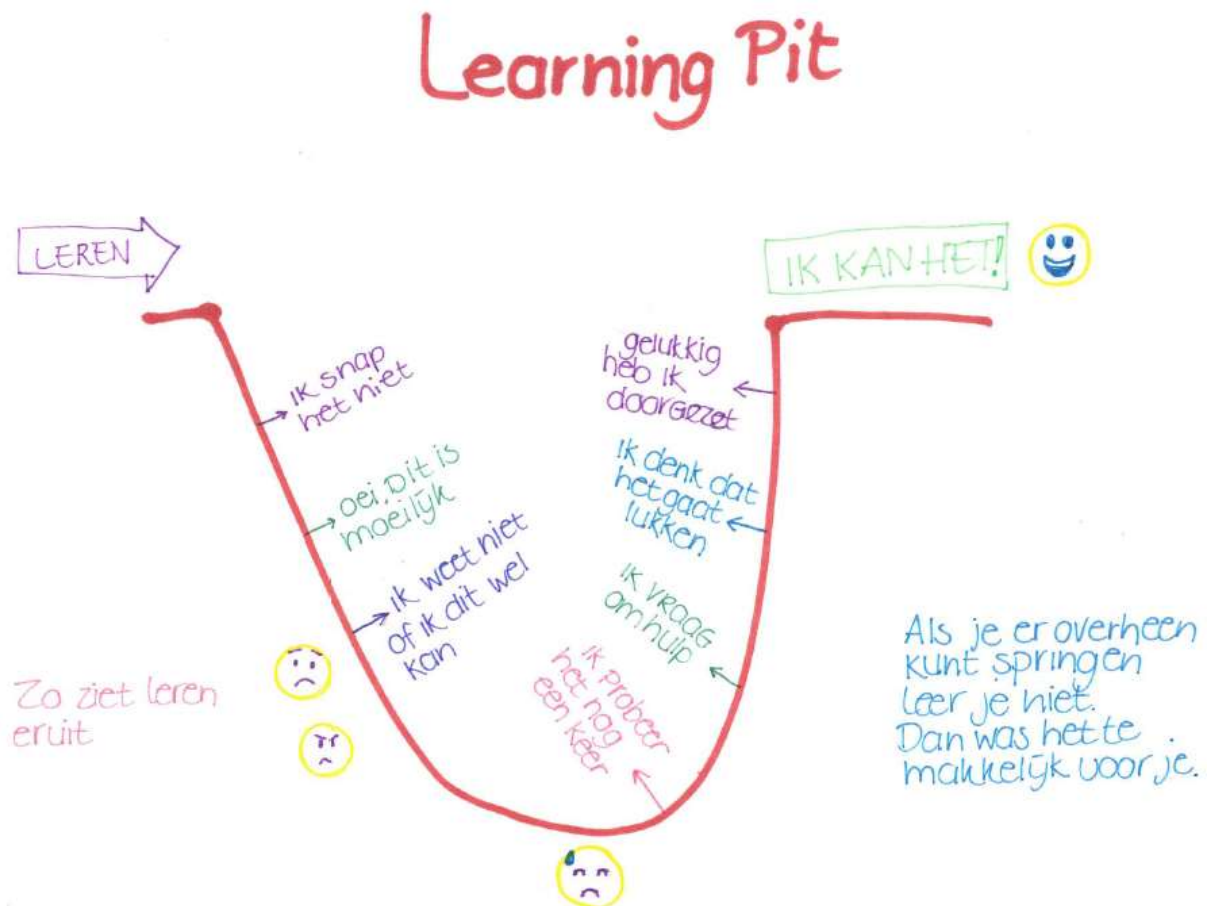 Learning Pit
LEREN
IK KAN HET!
ik snap
het niet
oei. Dit is
moeilijk
ik weet niet
of ik dit wel
kan
ik probeer
het nog
een keer
ik vraag
om hulp
ik denk dat
het gaat
lukken
gelukkig
heb ik
doorgezet
Zo ziet leren
eruit
Als je er overheen
kunt springen
leer je niet.
Dan was het te
makkelijk voor je.